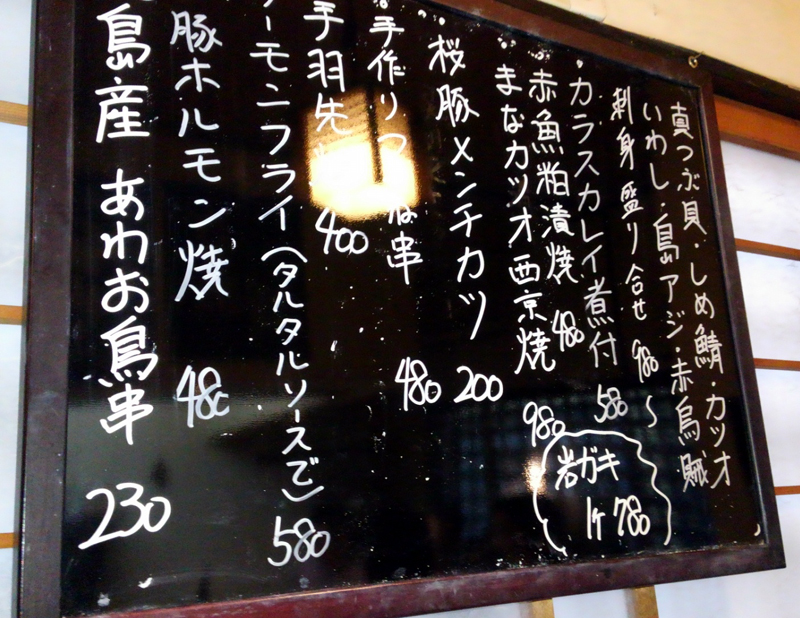 真つぶ貝・しめ鯖・カツオ
いわし・島アジ・赤烏賊
刺身盛り合せ 980～
カラスカレイ煮付 580
赤魚粕漬焼 480
まなカツオ西京焼 980
岩ガキ
1ヶ 780
桜豚メンチカツ 200
手作りつ ね串 480
手羽先 400
ーモンフライ(タルタルソースで) 580
豚ホルモン焼 480
島産 あわお鳥串 230